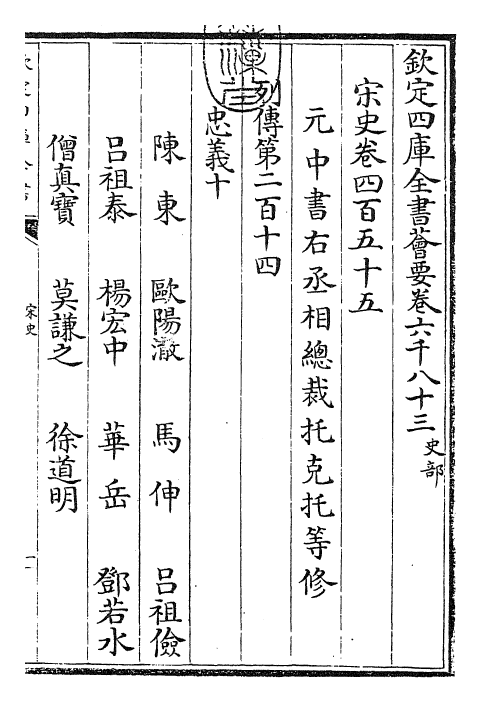 欽定四庫全書薈要卷六千八十三 史部
宋史卷四百五十五
元中書右丞相總裁托克托等修
列傳第二百十四
忠義十
陳東 歐陽澈 馬伸 吕祖儉
吕祖泰 楊宏中 華岳 鄧若水
僧真寶 莫謙之 徐道明
宋史